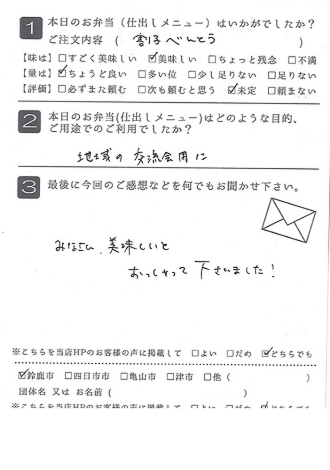 1 本日のお弁当（仕出しメニュー）はいかがでしたか？
ご注文内容 （ 割子べんとう ）
【味は】□すごく美味しい ☑美味しい □ちょっと残念 □不満
【量は】☑ちょうど良い □多い位 □少し足りない □足りない
【評価】□必ずまた頼む □次も頼むと思う ☑未定 □頼まない
2 本日のお弁当(仕出しメニュー)はどのような目的、
ご用途でのご利用でしたか？
地域の交流会用に
3 最後に今回のご感想などを何でもお聞かせ下さい。
みなさん、美味しいと
おっしゃって下さいました！
※こちらを当店HPのお客様の声に掲載して □よい □だめ ☑どちらでも
☑鈴鹿市 □四日市市 □亀山市 □津市 □他（ ）
団体名 又は お名前（ ）
※こちらを当店HPのお客様の声に掲載して □よい □だめ ☑どちらでも